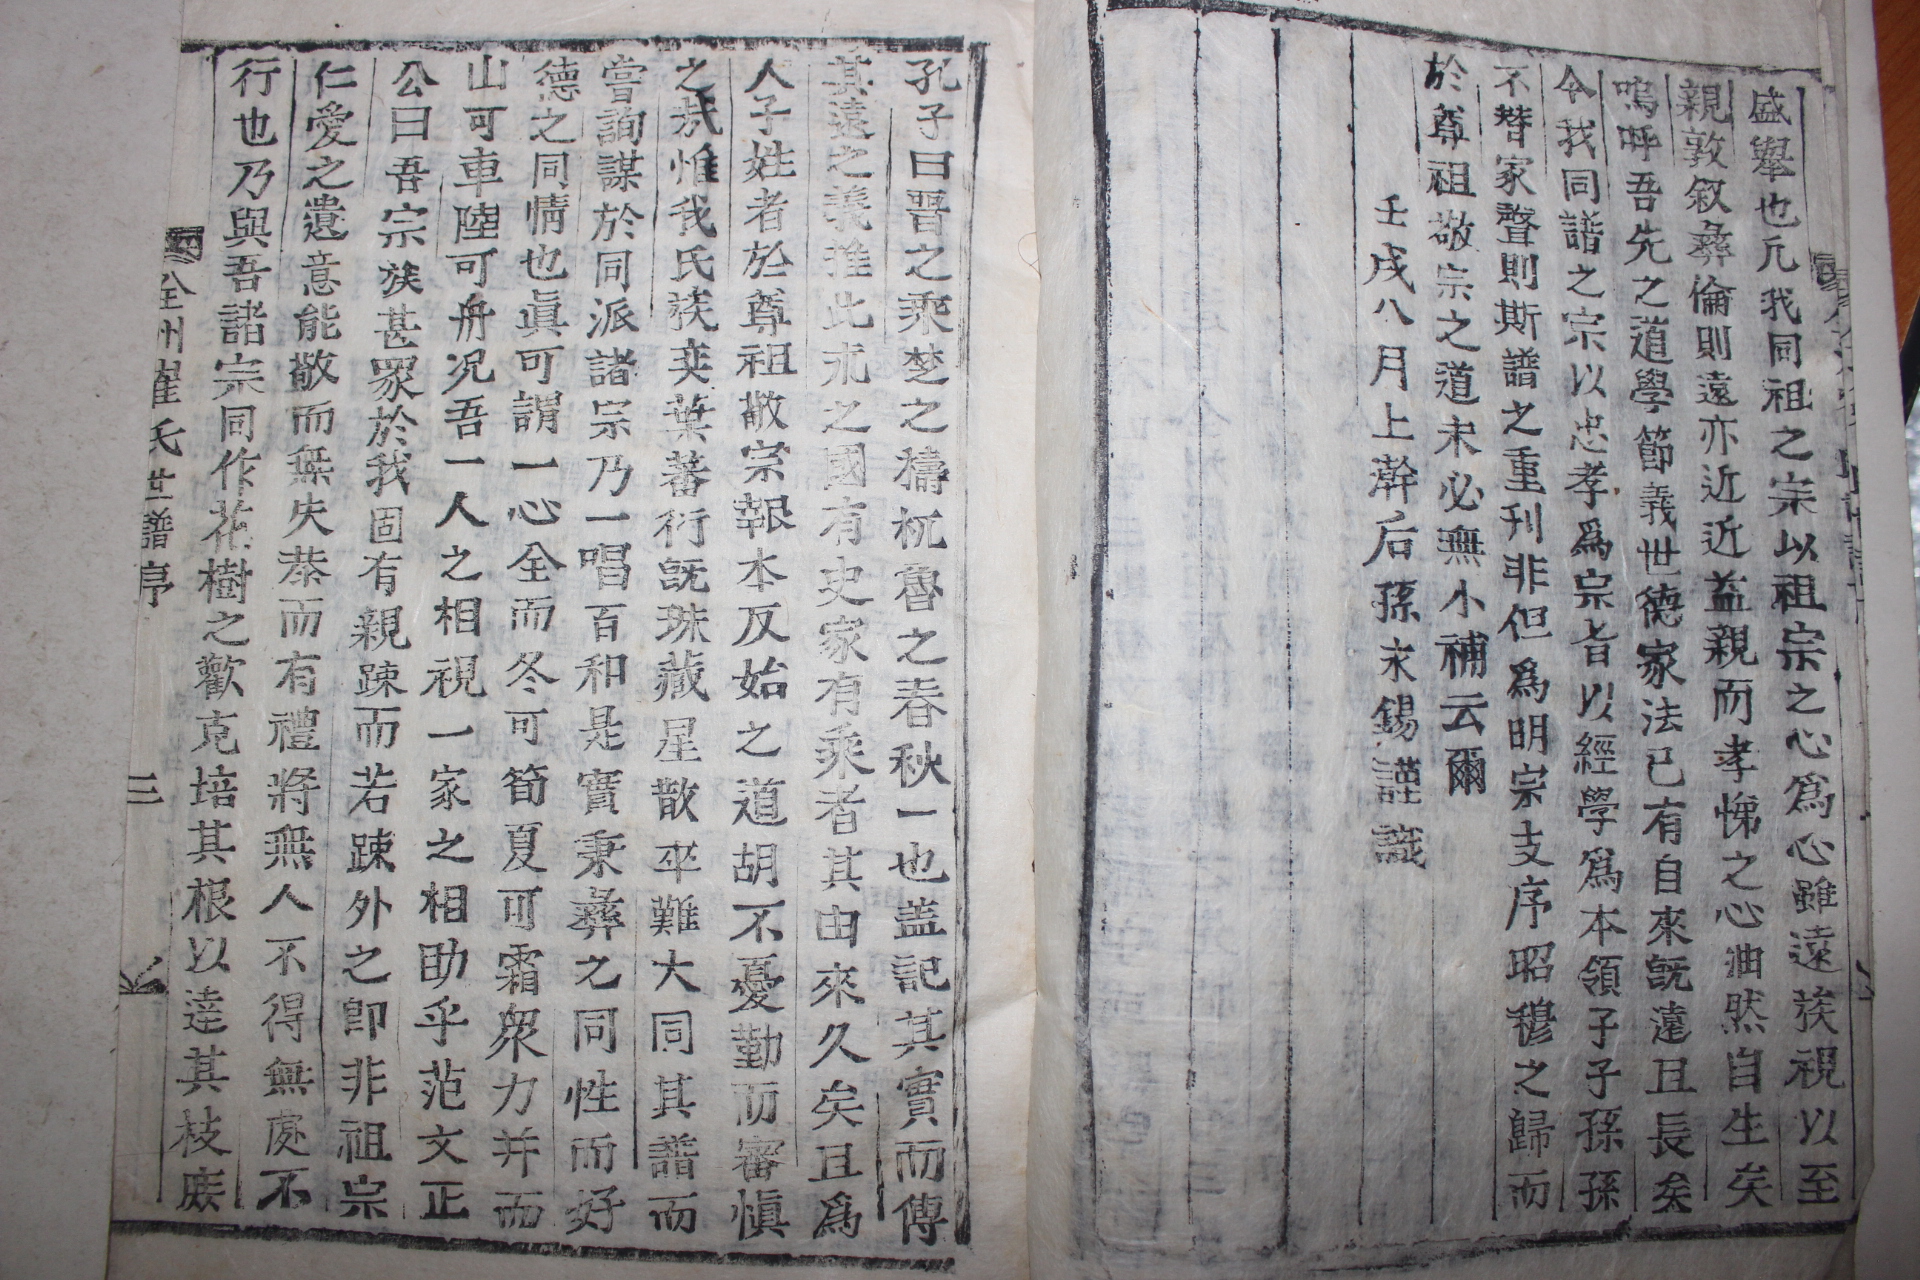 盛擧也凡我同祖之宗以祖宗之心爲心雖遠族視以至
親敦叙彝倫則遠亦近近益親而孝悌之心油然自生矣
嗚呼吾先之道學節義世德家法已有自來旣遠且長矣
今我同譜之宗以忠孝爲宗旨以經學爲本領子子孫孫
不替家聲則斯譜之重刊非但爲明宗支序昭穆之歸而
於尊祖敬宗之道未必無小補云爾
壬戌八月上澣后孫永錫謹識
孔子曰晋之乘楚之檮杌魯之春秋一也盖記其實而傳
其遠之義推此求之國有史家有乘者其由來久矣且爲
人子姓者於尊祖敬宗報本反始之道胡不憂勤而審愼
之哉惟我氏族奕葉蕃衍旣珠藏星散卒難大同其譜而
嘗詢謀於同派諸宗乃一唱百和是實秉彝之同性而好
德之同情也眞可謂一心全而冬可筍夏可霜衆力并而
山可車陸可舟况吾一人之相視一家之相助乎范文正
公曰吾宗族甚眾於我固有親踈而若踈外之即非祖宗
仁愛之遺意能敬而無失恭而有禮將無人不得無處不
行也乃與吾諸宗同作花樹之歡克培其根以達其枝庶
全州崔氏世譜序
三